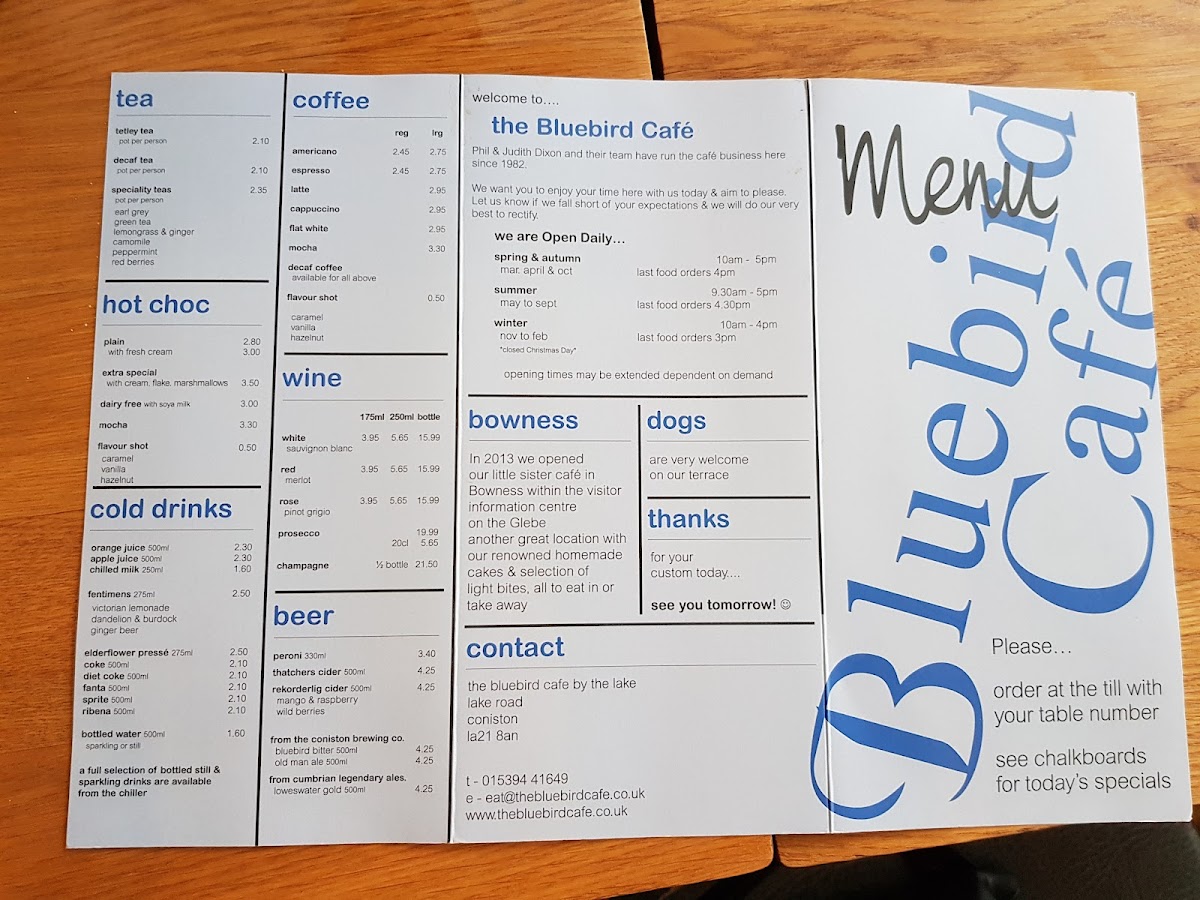 tea
tetley tea
pot per person 2.10
decaf tea
pot per person 2.10
speciality teas 2.35
pot per person
earl grey
green tea
lemongrass & ginger
camomile
peppermint
red berries
hot choc
plain 2.80
with fresh cream 3.00
extra special
with cream, flake, marshmallows 3.50
dairy free with soya milk 3.00
mocha 3.30
flavour shot 0.50
caramel
vanilla
hazelnut
cold drinks
orange juice 500ml 2.30
apple juice 500ml 2.30
chilled milk 250ml 1.60
fentimens 275ml 2.50
victorian lemonade
dandelion & burdock
ginger beer
elderflower pressé 275ml 2.50
coke 500ml 2.10
diet coke 500ml 2.10
fanta 500ml 2.10
sprite 500ml 2.10
ribena 500ml 2.10
bottled water 500ml 1.60
sparkling or still
a full selection of bottled still &
sparkling drinks are available
from the chiller
coffee
reg lrg
americano 2.45 2.75
espresso 2.45 2.75
latte 2.95
cappuccino 2.95
flat white 2.95
mocha 3.30
decaf coffee
available for all above
flavour shot 0.50
caramel
vanilla
hazelnut
wine
175ml 250ml bottle
white 3.95 5.65 15.99
sauvignon blanc
red 3.95 5.65 15.99
merlot
rose 3.95 5.65 15.99
pinot grigio
prosecco 19.99
20cl 5.65
champagne ½ bottle 21.50
beer
peroni 330ml 3.40
thatchers cider 500ml 4.25
rekorderlig cider 500ml 4.25
mango & raspberry
wild berries
from the coniston brewing co.
bluebird bitter 500ml 4.25
old man ale 500ml 4.25
from cumbrian legendary ales.
loweswater gold 500ml 4.25
welcome to....
the Bluebird Café
Phil & Judith Dixon and their team have run the café business here
since 1982.
We want you to enjoy your time here with us today & aim to please.
Let us know if we fall short of your expectations & we will do our very
best to rectify.
we are Open Daily...
spring & autumn 10am - 5pm
mar. april & oct last food orders 4pm
summer 9.30am - 5pm
may to sept last food orders 4.30pm
winter 10am - 4pm
nov to feb last food orders 3pm
*closed Christmas Day*
opening times may be extended dependent on demand
bowness
In 2013 we opened
our little sister café in
Bowness within the visitor
information centre
on the Glebe
another great location with
our renowned homemade
cakes & selection of
light bites, all to eat in or
take away
dogs
are very welcome
on our terrace
thanks
for your
custom today....
see you tomorrow! ☺
contact
the bluebird cafe by the lake
lake road
coniston
la21 8an
t - 015394 41649
e - eat@thebluebirdcafe.co.uk
www.thebluebirdcafe.co.uk
Menu
Bluebird
Café
Please...
order at the till with
your table number
see chalkboards
for today's specials